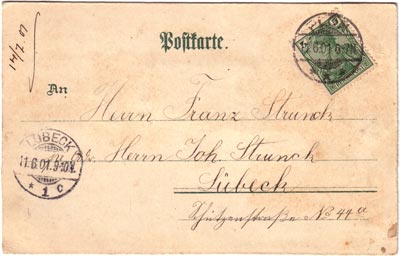 Postkarte.
An
Herrn Franz Strunck
Herrn Joh. Strunck
Lübeck
Schützenstraße No 44a
LÜBECK
11.6.01.9-10V.
* 1 c
11.6.01.6-7N.